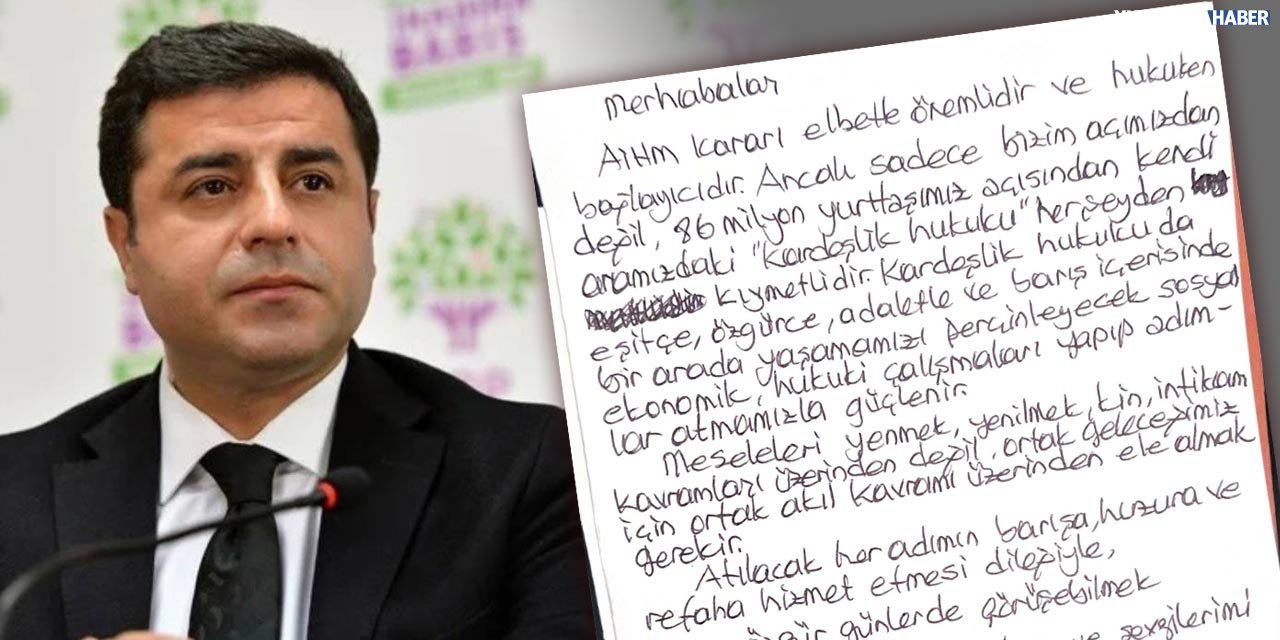 HABER
BARIŞ
merhabalar
AİHM kararı elbette önemlidir ve hukuken
bağlayıcıdır. Ancak sadece bizim açımızdan
değil, 86 milyon yurttaşımız açısından kendi
aramızdaki "kardeşlik hukuku" herşeyden
kıymetlidir. Kardeşlik hukuku da
eşitçe, özgürce, adaletle ve barış içerisinde
bir arada yaşamamızı perçinleyecek sosyal
ekonomik, hukuki çalışmaları yapıp adım-
lar atmamızla güçlenir.
Meseleleri yenmek, yenilmek, kin, intikam
kavramları üzerinden değil, ortak geleceğimiz
için ortak akıl kavramı üzerinden ele almak
gerekir.
Atılacak her adımın barışa, huzura ve
refaha hizmet etmesi dileğiyle,
günlerde görüşebilmek
ve sevgilerimi